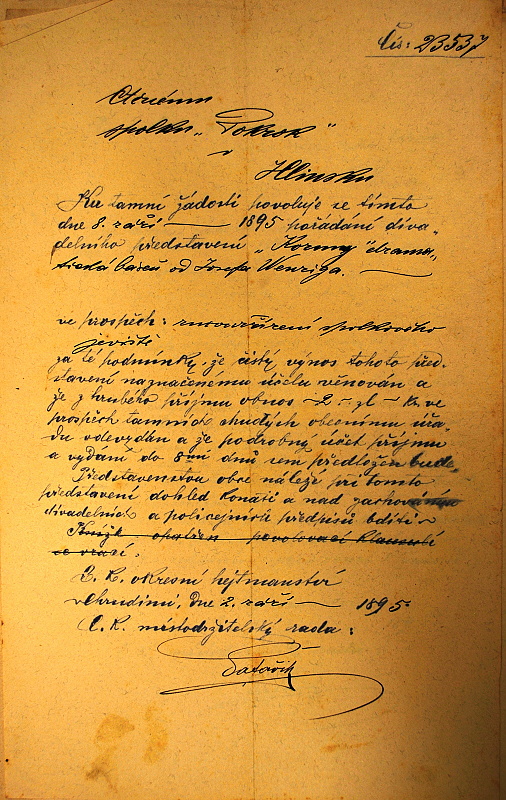 Čís: 23537
Ctěnému
spolku „Pokrok"
v
Hlinsku
Ku tamní žádosti povoluje se tímto
dne 8. září — 1895 pořádání diva-
delního představení „Koruny" drama-
tická báseň od Josefa Wenziga. —
ve prospěch: znovuzřízení spolkového
jeviště
za té podmínky, že čistý výnos tohoto před-
stavení naznačenému účelu věnován a
že z hrubého příjmu obnos – 2 – zl – kr. ve
prospěch tamních chudých obecnímu úřa-
du odevzdán a že podrobný účet příjmu
a vydání do 8mi dnů sem předložen bude.
Představenstvu obce náleží při tomto
představení dohled konati a nad zachováním
divadelních a policejních předpisů bdíti.
opatřen povolovací klausulí
se vrací.
C. k. okresní hejtmanství
v Chrudimi, dne 2. září — 1895
C. k. místodržitelský rada: